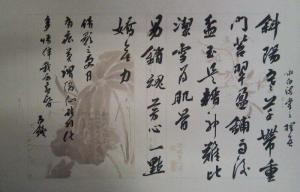 斜陽寒草帶重
門苔翠盈鋪雨後
盆玉是精神難比
潔雪為肌骨
易銷魂芳心一點
嬌無力
倩影三更月
有痕莫謂縞仙能羽化
多情伴我詠黃昏